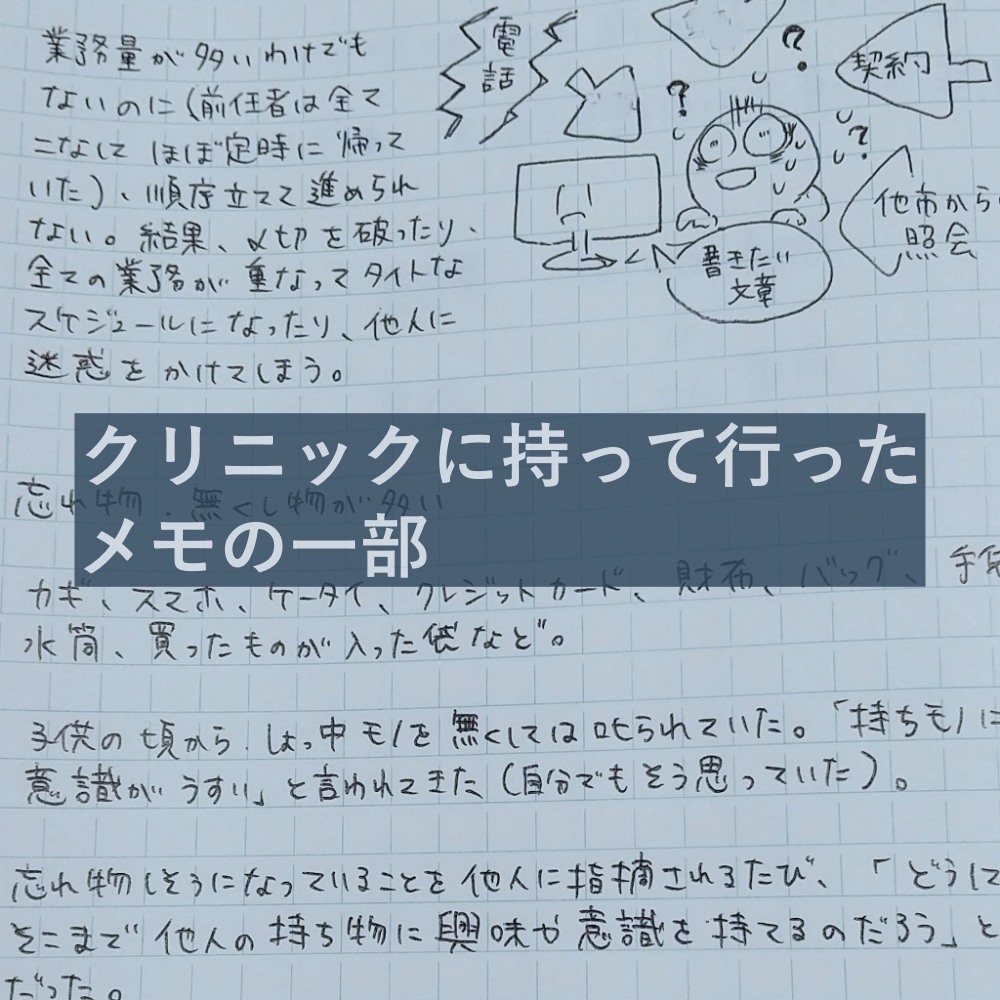 業務量が多いわけでも
ないのに(前任者は全て
こなしてほぼ定時に帰って
いた)、順序立てて進められ
ない。結果、〆切を破ったり、
全ての業務が重なってタイトな
スケジュールになったり、他人に
迷惑をかけてしまう。
電話
?
?
?
契約
他市から
照会
書きたい
文章
クリニックに持って行った
メモの一部
忘れ物・無くし物が多い
カギ、スマホ、ケータイ、クレジットカード、財布、バッグ、手
水筒、買ったものが入った袋など。
子供の頃から、しょっ中モノを無くしては叱られていた。「持ちモノに
意識がうすい」と言われてきた(自分でもそう思っていた)。
忘れ物しそうになっていることを他人に指摘されるたび、「どうして
そこまで他人の持ち物に興味や意識を持てるのだろう」と
だった。